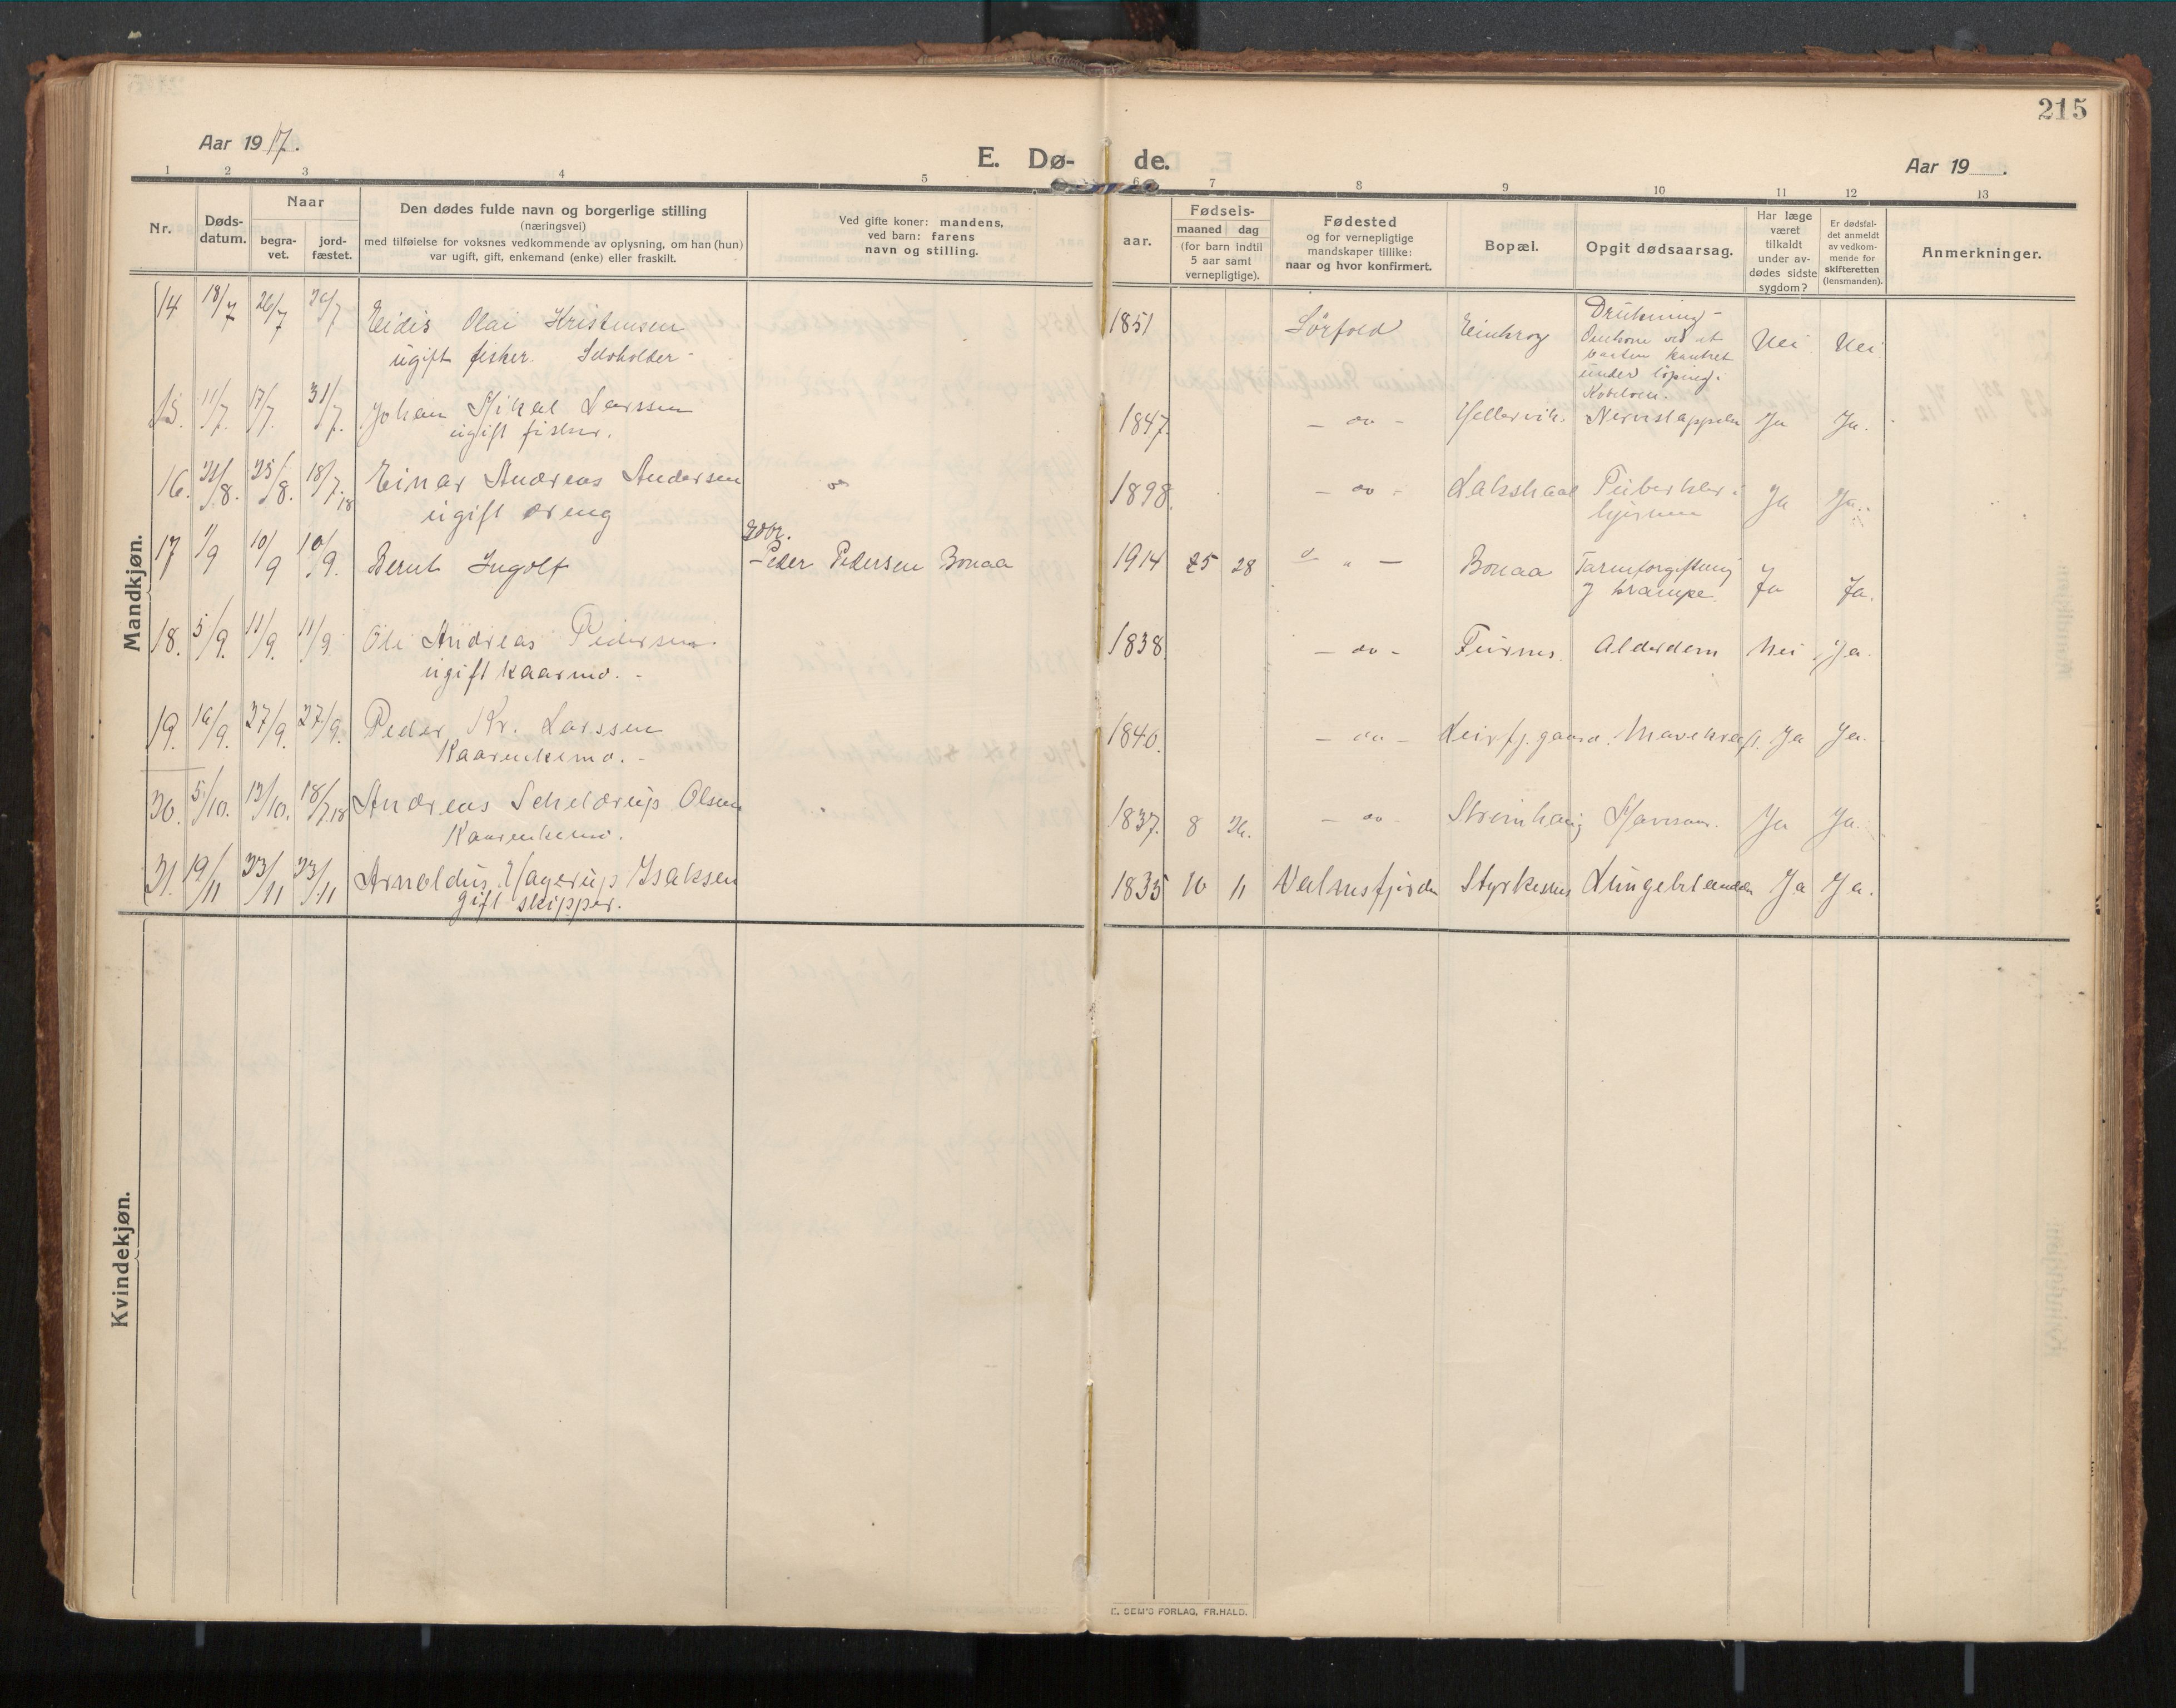 215
Aar 1917.
E. Dø-
de.
Aar 19 .
1 2 3 4 5 6 7 8 9 10 11 12 13
Nr.
Døds-
datum.
Naar
begra-
vet.
jord-
fæstet.
Den dødes fulde navn og borgerlige stilling
(næringsvei)
med tilføielse for voksnes vedkommende av oplysning, om han (hun)
var ugift, gift, enkemand (enke) eller fraskilt.
Ved gifte koner: mandens,
ved barn: farens
navn og stilling.
aar.
Fødsels-
maaned dag
(for barn indtil
5 aar samt
vernepligtige).
Fødested
og for vernepligtige
mandskaper tillike:
naar og hvor konfirmert.
Bopæl.
Opgit dødsaarsag.
Har læge
været
tilkaldt
under av-
dødes sidste
sygdom?
Er dødsfal-
det anmeldt
av vedkom-
mende for
skifteretten
(lensmanden).
Anmerkninger.
Mandkjøn.
14 18/7 26/7 26/7 Eidis Olai Kristensen 1851 Sörfold Drukning - Nei Nei
ugift fisker
under
15. 11/7. 17/7. 31/7. Johan Mikal Larssen 1847. - do - Hellarvik. Ja Ja.
ugift fisker.
16. 21/8. 25/8. 18/7.18 Einar Andreas Andersen 1898. - do - Lakshaal Ja Ja.
ugift dreng
17 1/9 10/9 10/9. Bernt Ingolf Peder Pedersen Bonaa 1914 28 Bonaa Tarmforgiftning Ja Ja.
krampe.
18. 5/9. 11/9. 11/9. Ole Andreas Pedersen 1838. - do - Furnes. Alderdom Nei Ja.
ugift kaarmd. -
19. 16/9. 27/9. 27/9. Peder Kr. Larssen 1840. - do - Leirfj. gaard. Mavekræft. Ja Ja.
Kaarenkemd. -
20. 5/10. 13/10. 18/7.18 Andreas Scheldrup Olsen 1837. 8 26. - do - Strömhaug Ja Ja.
Kaarenkemd.
21. 19/11 23/11 23/11 Arnoldus Hagerup Isaksen 1835 10 11 Valnesfjorden Styrkesnes Ja Ja.
gift skipper.
Kvindekjøn.
E. SEM'S FORLAG, FR.HALD.